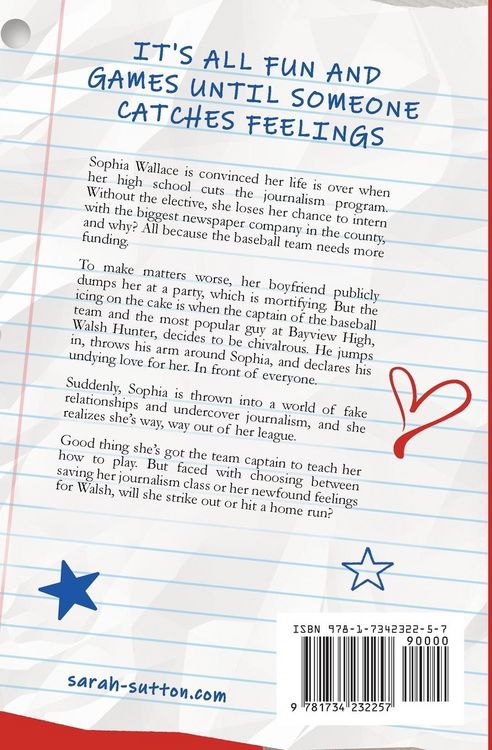 IT'S ALL FUN AND
GAMES UNTIL SOMEONE
CATCHES FEELINGS
Sophia Wallace is convinced her life is over when
her high school cuts the journalism program.
Without the elective, she loses her chance to intern
with the biggest newspaper company in the county,
and why? All because the baseball team needs more
funding.
To make matters worse, her boyfriend publicly
dumps her at a party, which is mortifying. But the
icing on the cake is when the captain of the baseball
team and the most popular guy at Bayview High,
Walsh Hunter, decides to be chivalrous. He jumps
in, throws his arm around Sophia, and declares his
undying love for her. In front of everyone.
Suddenly, Sophia is thrown into a world of fake
relationships and undercover journalism, and she
realizes she's way, way out of her league.
Good thing she's got the team captain to teach her
how to play. But faced with choosing between
saving her journalism class or her newfound feelings
for Walsh, will she strike out or hit a home run?
ISBN 978-1-7342322-5-7
90000
9 781734 232257
sarah-sutton.com